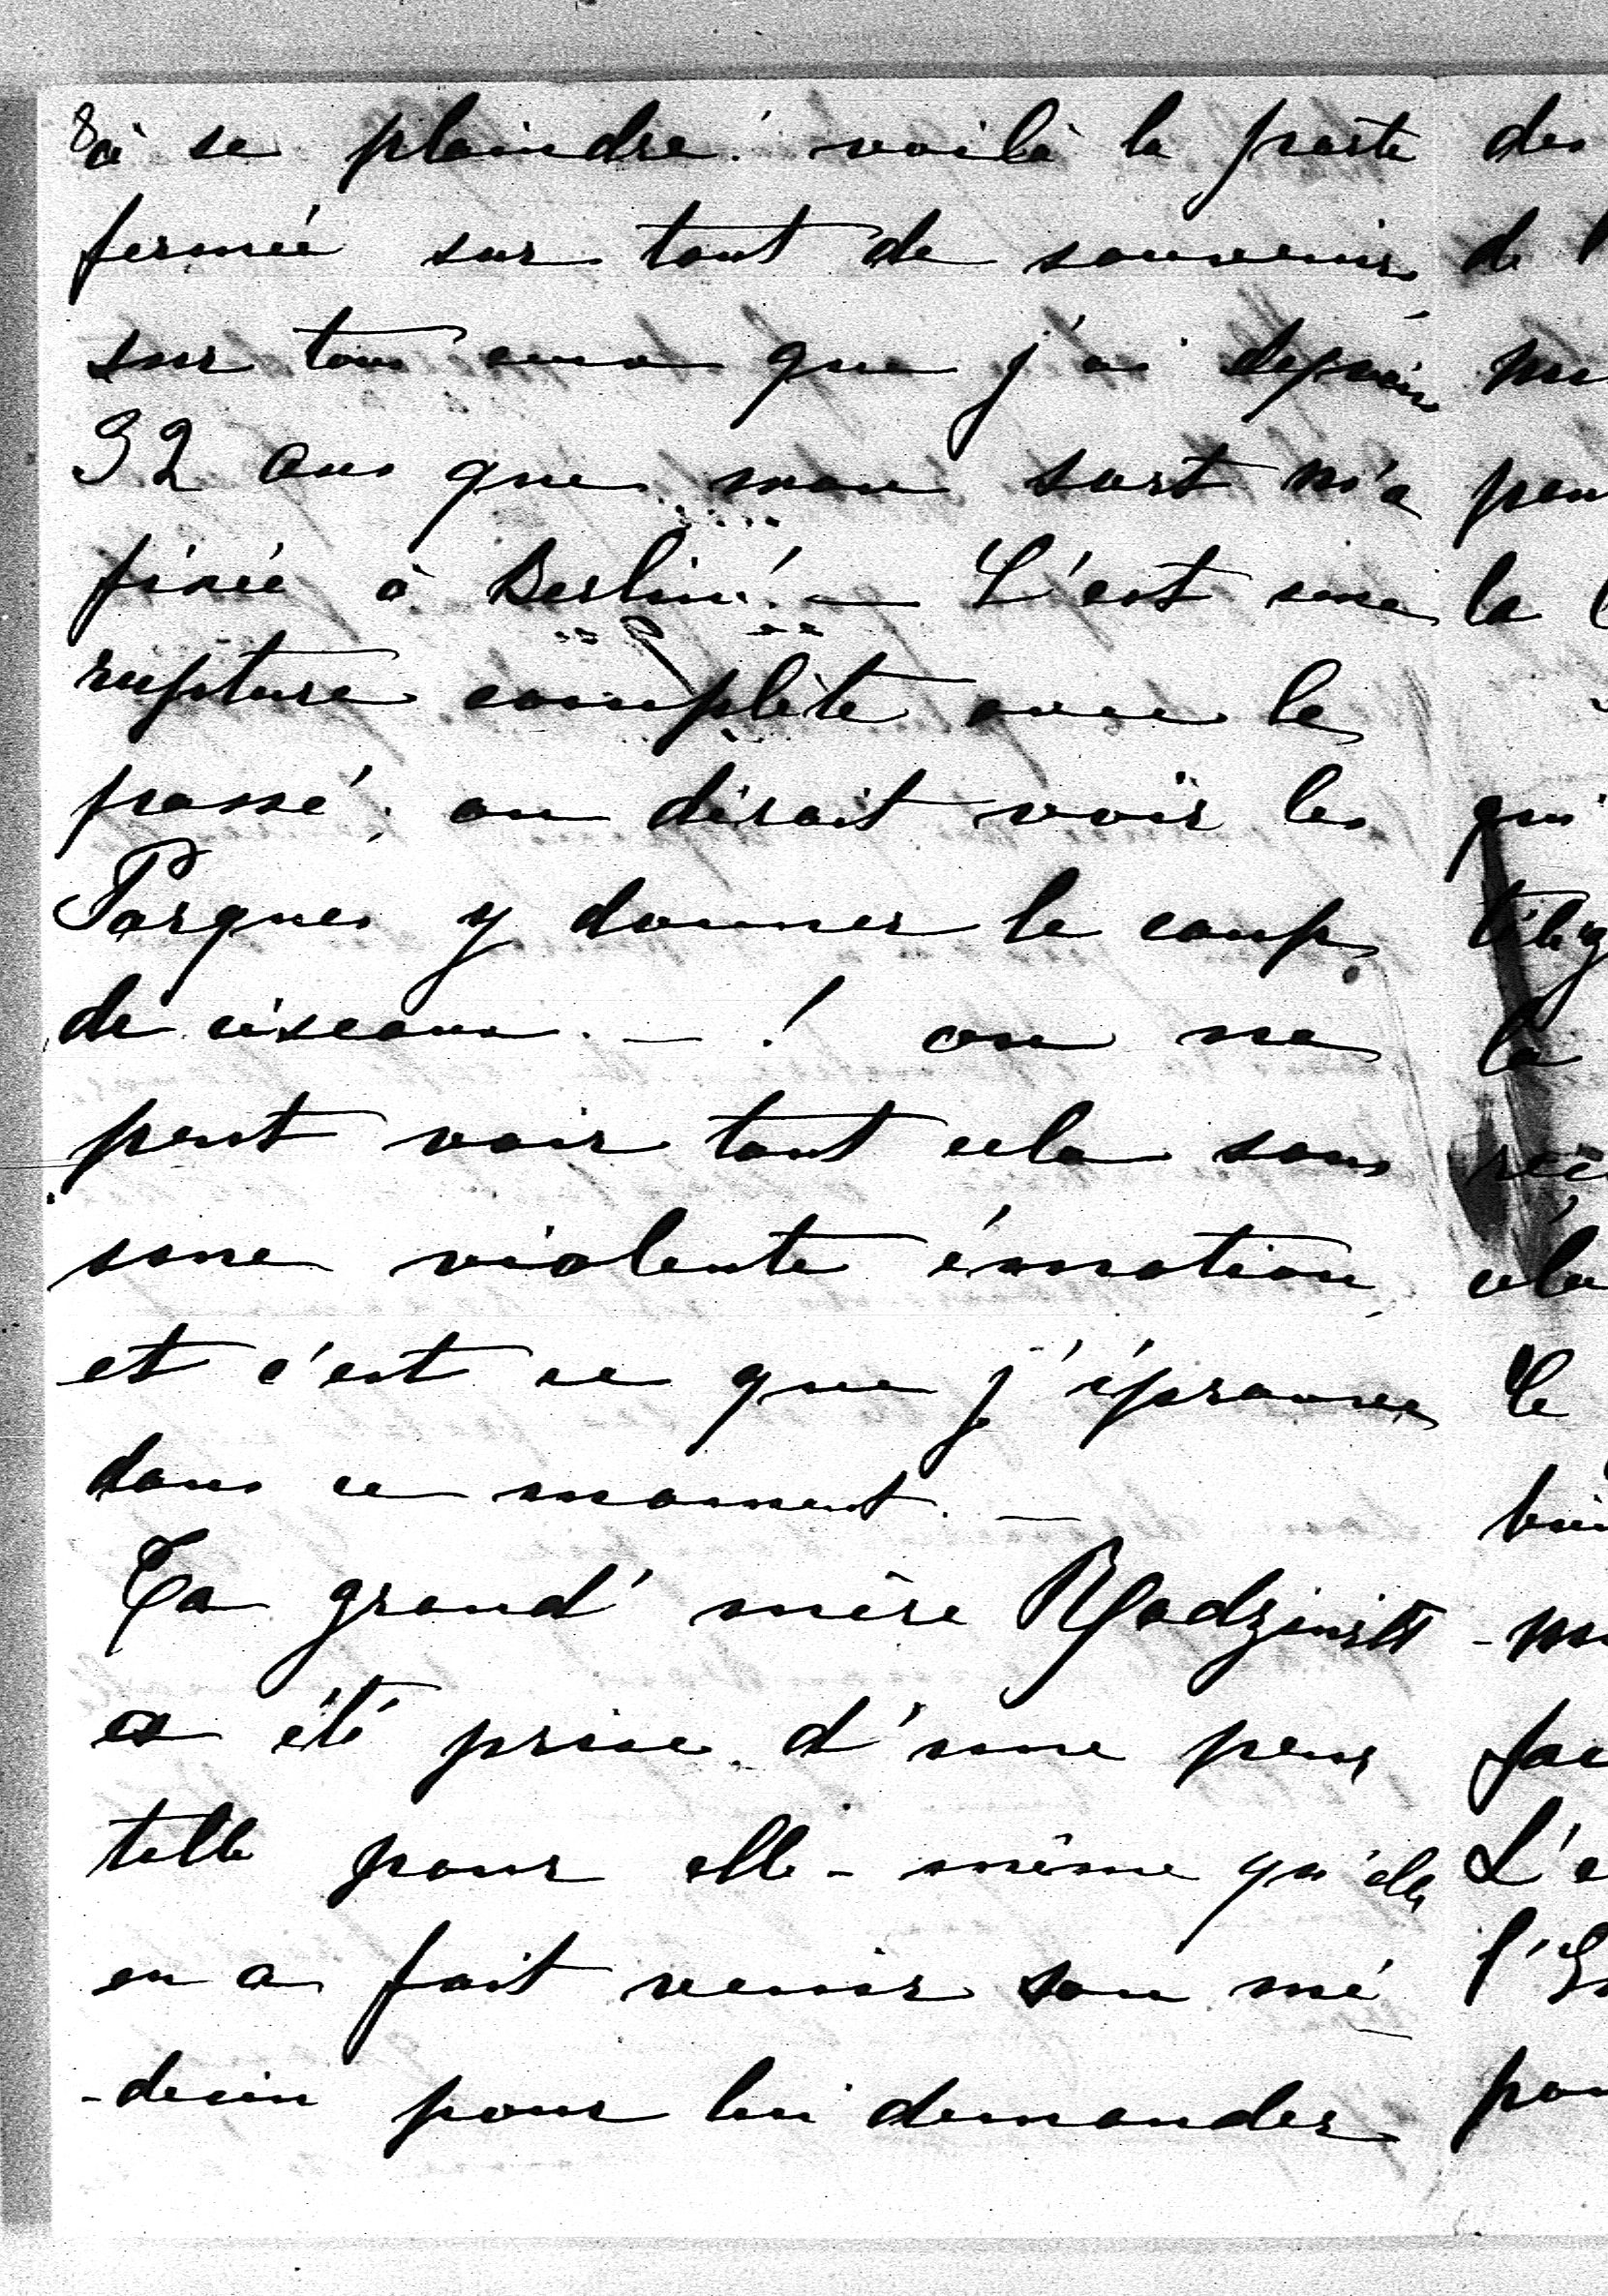 8
à se plaindre! voilà la porte
fermée sur tout de souvenirs,
sur tous ceux que j'ai depuis
32 ans que mon sort m'a
fixée à Berlin! — C'est une
rupture complète avec le
passé; on dirait voir les
Parques y donner le coup
de ciseaux. — ! on ne
peut voir tout cela sans
une violente émotion,
et c'est ce que j'éprouve
dans ce moment. —
Ta grand' mère
a été prise d'une peur
telle pour elle-même qu'elle
en a fait venir son mé
-decin pour lui demander
des
de l
la
qui
la
cela
Le
L'e